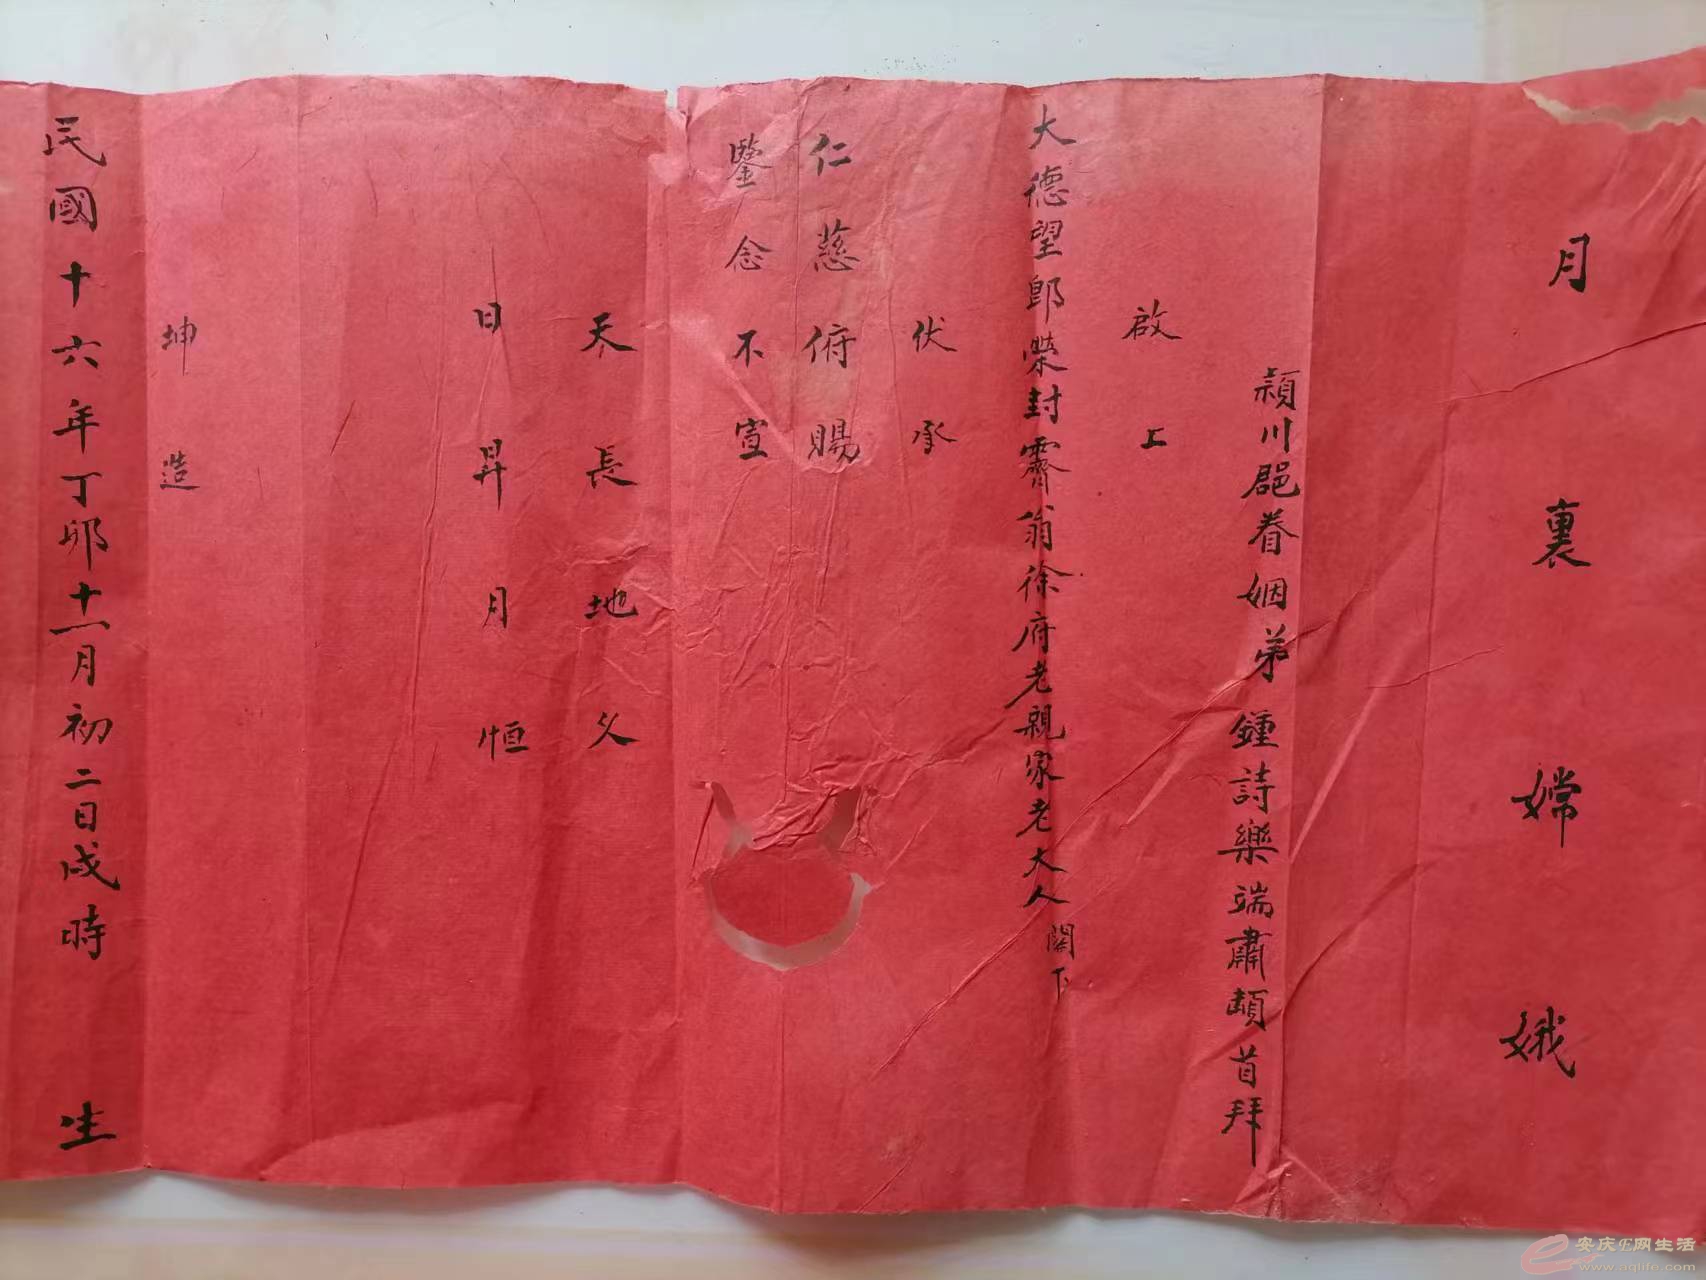 月裏嫦娥
頴川郡眷姻弟鍾詩樂端肅頓首拜
啟上
大德望郎榮封霽翁徐府老親家老大人閣下
伏承
仁慈俯賜
鑒念不宣
天長地久
日昇月恒
坤造
民國十六年丁卯十一月初二日戌時 生
安庆E网生活
www.aqlife.com